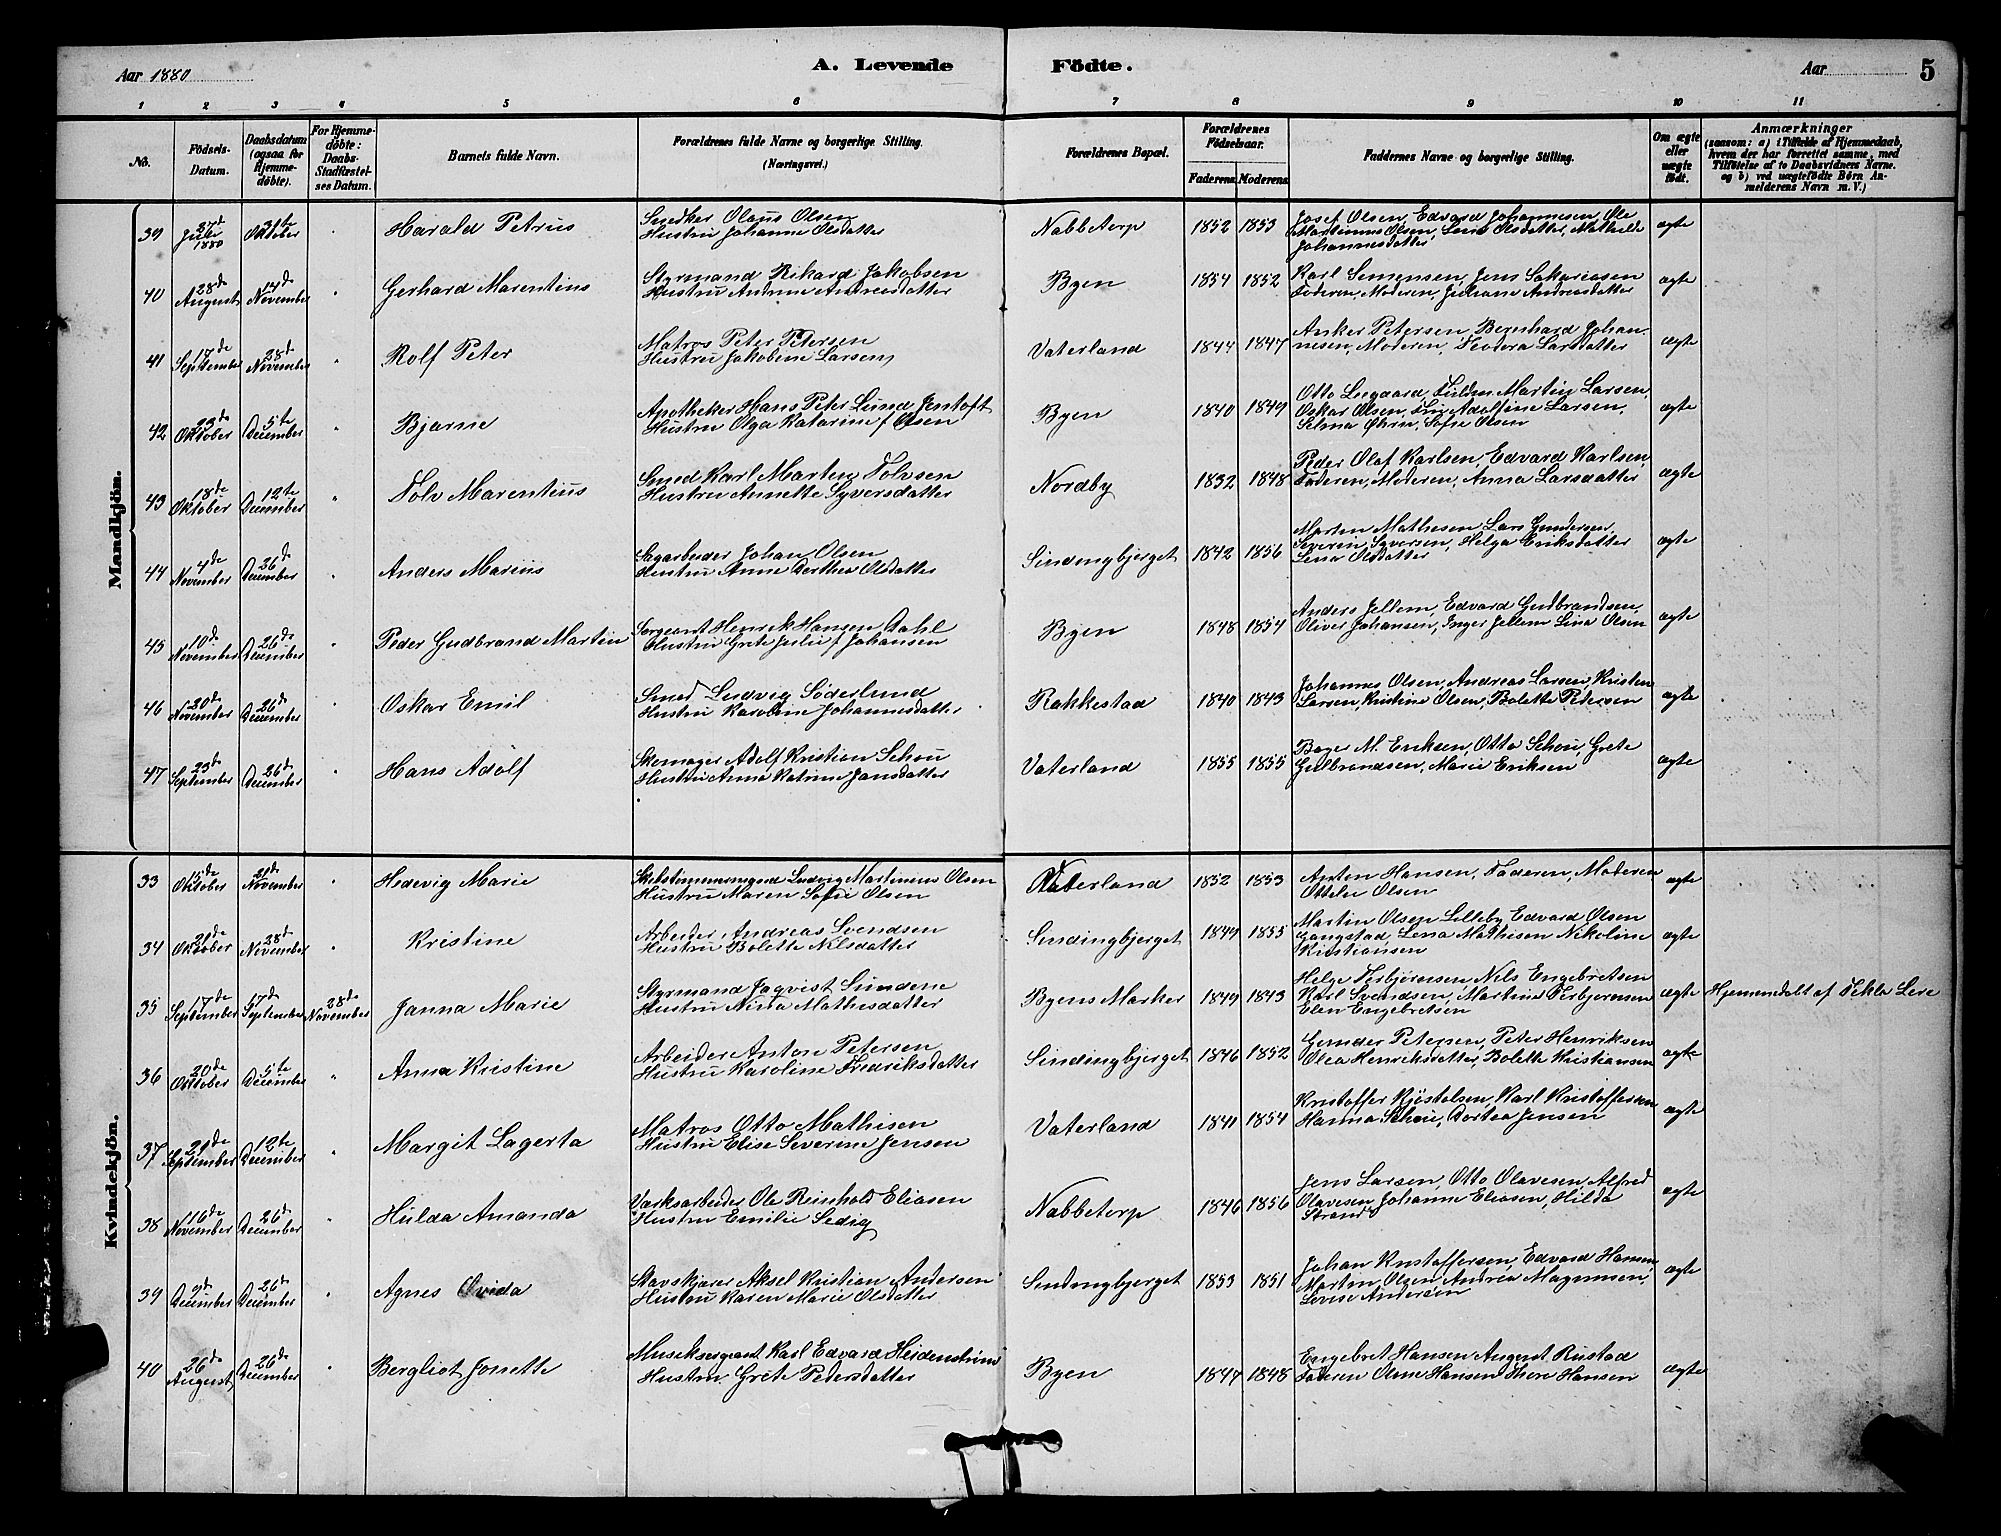 Aar 1880
A. Levende Födte.
Aar
5
1 2 3 4 5 6 7 8 9 10 11
No.
Födsels-Datum.
Daabsdatum (ogsaa for Hjemme-döbte).
For Hjemme-döbte: Daabs-Stadfæstel-ses Datum.
Barnets fulde Navn.
Forældrenes fulde Navne og borgerlige Stilling. (Næringsvei.)
Forældrenes Bopæl.
Forældrenes Födselsaar.
Faderens. Moderens.
Faddernes Navne og borgerlige Stilling.
Om ægte eller uægte födt.
Anmærkninger
(saasom: a) i Tilfælde af Hjemmedaab, hvem der har forrettet samme, med Tilföielse af to Daabsvidners Navne. og b) ved uægtefödte Börn An-melderens Navn m. V.)
Mandkjön.
39 Juli 1880 31te Oktober Harald Petrus Snedker Olaus Olsen Nabbetorp 1852 1853 Josef Olsen, Edvard Johannesen, Ole ægte
Hustru Johanne Olsdatter Martinius Olsen, Lina Olsdatter, Mathilde
Johannesdatter
40 28de August 14de November Gerhard Marentius Styrmand Rikard Jakobsen Byen 1854 1852 Karl Simensen, Jens Sakariasen ægte
Hustru Andrine Andreasdatter Faderen, Moderen, Juliane Andreasdatter
41 18de September 28de November Rolf Peter Matros Peter Petersen Vaterland 1844 1847 Anker Petersen, Bernhard Johan-ægte
Hustru Jakobine Larsen nesen, Moderen, Teodora Larsdatter
42 25de Oktober 5te December Bjarne Apotheker Hans Peter Lund Jentoft Byen 1840 1849 Otto Lugaard, Martin Larsen, ægte
Hustru Olga Katarine f Olsen Oskar Olsen, Adolfine Larsen,
Selma Öhrn, Sofie Olsen
43 18de Oktober 12te December Tolv Marentius Smed Karl Martin Tolvsen Nordby 1832 1848 Peder Olaf Karlsen, Edvard Karlsen, ægte
Hustru Annette Syversdatter Faderen, Moderen, Anna Larsdatter
44 4de November 26de December Anders Marius Sagarbeider Johan Olsen Sindingbjerget 1842 1856 Martin Mathesen, Lars Gundersen, ægte
Hustru Anne Dorthea Olsdatter Severin Syversen, Helga Eriksdatter
Lina Olsdatter
45 10de November 26de December Peder Gudbrand Martin Sergeant Henrik Hansen Dahl Byen 1848 1854 Anders Jellem, Edvard Gudbrandsen, ægte
Hustru Grete Julie f Johansen Oliver Johansen, Inger Jellem, Lina Olsen
46 20de November 26de December Oskar Emil Smed Ludvig Söderlund Rakkestad 1840 1843 Johannes Olsen, Andreas Larsen, Kristen ægte
Hustru Karoline Johannesdatter Larsen, Kristine Olsen, Bolette Petersen
47 23de September 26de December Hans Adolf Skomager Adolf Kristian Schou Vaterland 1855 1855 M. Eriksen, Otto Schou, Grete ægte
Hustru Anna Katrine Jansdatter Gulbrandsen, Marie Eriksen
Kvindekjön.
33 15de Oktober 21de November Hedevig Marie Skibstimmermand Ludvig Martinius Olsen Vaterland 1852 1853 Anton Hansen, Faderen, Moderen ægte
Hustru Maren Sofie Olsen Ottelie Olsen
34 21de Oktober 28de November Kristine Arbeider Andreas Svendsen Sindingbjerget 1849 1855 Martin Olsen Lilleby, Edvard Olsen ægte
Hustru Bolette Nilsdatter Langstad, Lena Mathisen Nikoline
Kristiansen
35 17de September 17de September 28de November Janna Marie Styrmand Jaqvist Sundene Byens Marker 1849 1843 Helge Terbjørensen Nils Engebretsen ægte Hjemmedøbt af Tekla Lere
Hustru Nista Mathisdatter Karl Svendsen, Martine Terbjørensen
Elen Engebretsen
36 20de Oktober 5te December Anna Kristine Arbeider Anton Petersen Sindingbjerget 1846 1852 Gunder Petersen, Peter Henriksen ægte
Hustru Karoline Fredriksdatter Olea Henriksdatter, Bolette Kristiansen
37 21de September 12te December Margit Lagerta Matros Otto Mathisen Vaterland 1841 1854 Kristoffer Kjöstelsen, Karl Kristoffersen ægte
Hustru Elise Severine Jensen Hanna Schou, Dortea Jensen
38 16de November 26de December Hulda Amanda Værksarbeider Ole Reinhold Eliasen Nabbetorp 1846 1856 Jens Larsen, Otto Olavesen, Alfred ægte
Hustru Emilie Sedig Olavesen, Johanne Eliasen, Hilda
Strand
39 9de December 26de December Agnes Ovida Stavskjærer Aksel Kristian Andersen Sindingbjerget 1853 1851 Johan Kristoffersen, Edvard Hansen ægte
Hustru Karen Marie Olsdatter Martin Olsen Andrea Magnusen,
Lovise Andersen
40 26de August 26de December Bergliot Jonette Musiksergeant Karl Edvard Heidenstrøm Byen 1847 1848 Engebret Hansen Angent Rustad ægte
Hustru Grete Pedersdatter Faderen Oline Hansen Thora Hansen